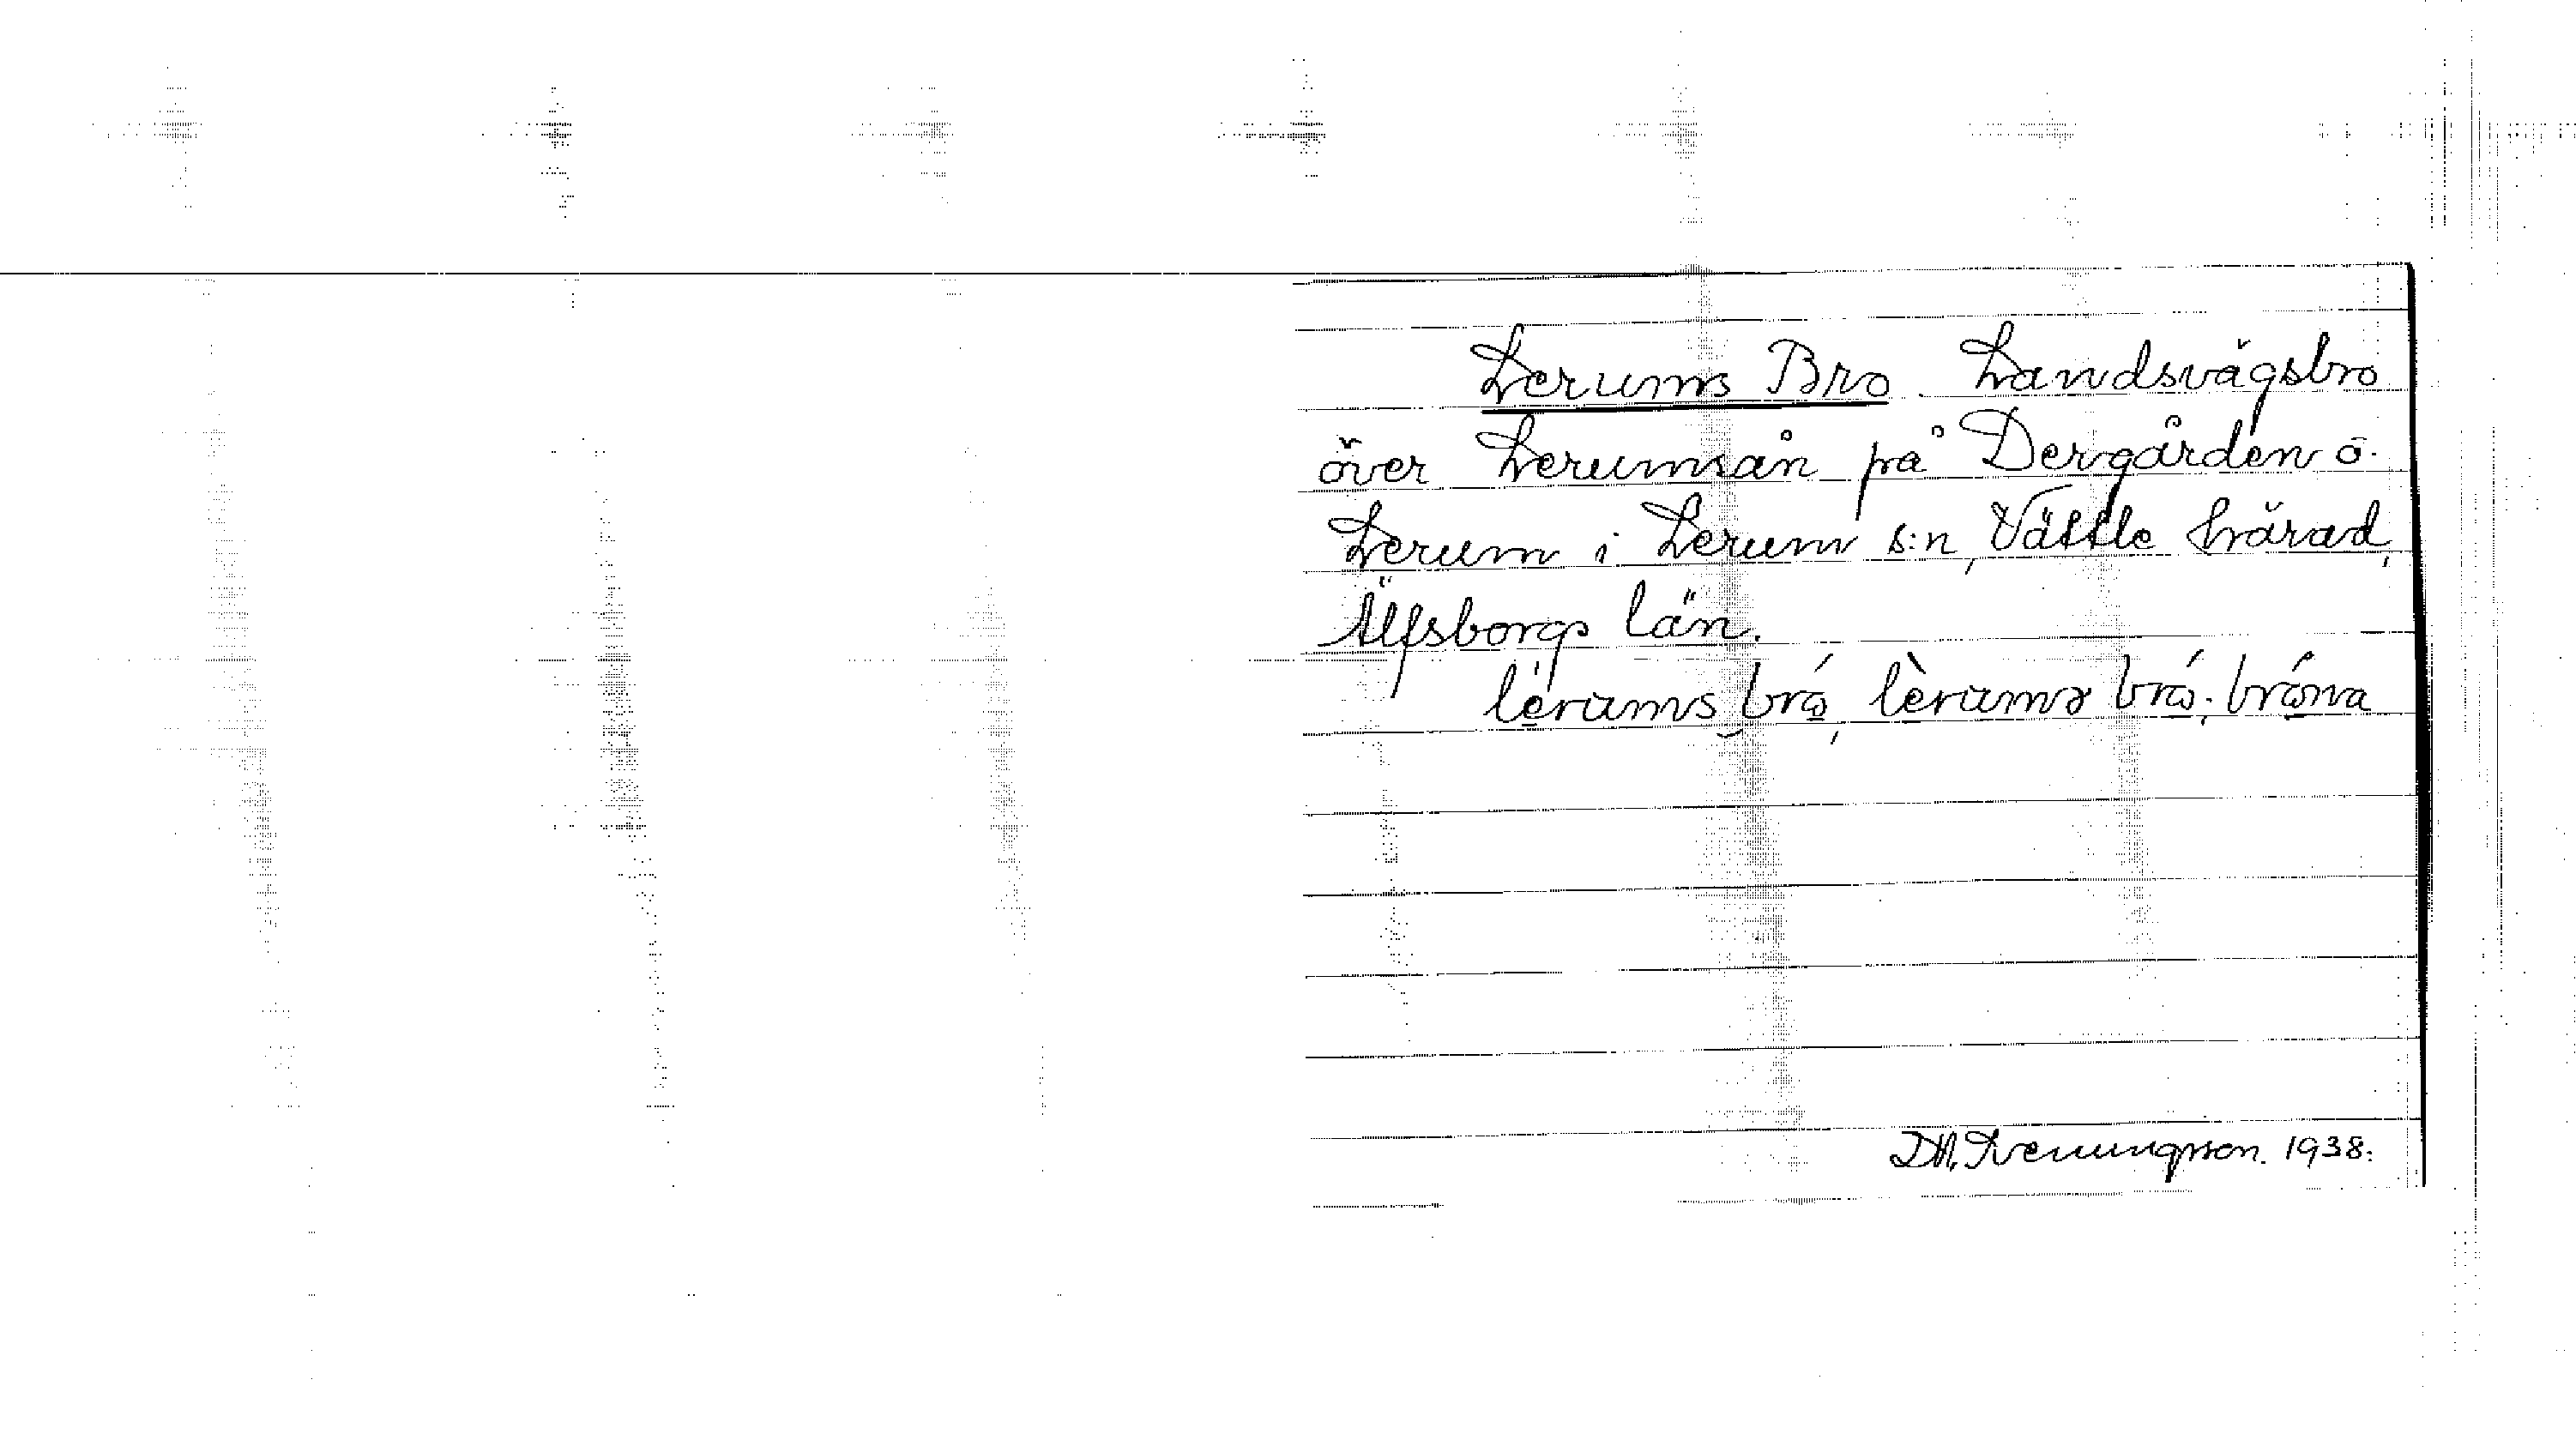 Lerums Bro. Landsvägsbro
över Lerumsån på Dergården ö.
Lerum i Lerum s:n, Vättle härad,
Älfsborgs län.
lèrums bró, lèrums bró; bróna
1938.